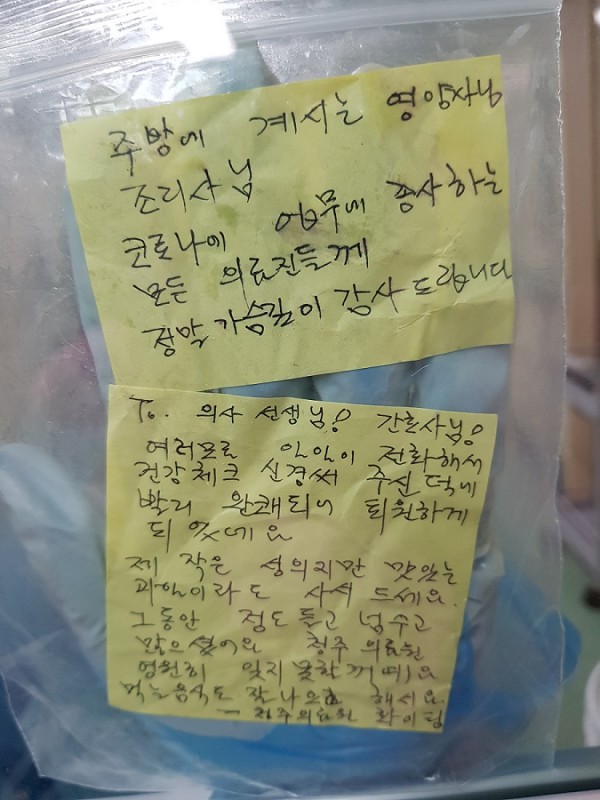 주방에 계시는 영양사님
조리사님
코로나에 업무에 종사하는
모든 의료진들께
정말 가슴깊이 감사 드립니다
To. 의사 선생님! 간호사님!
여러모로 일일이 전화해서
건강체크 신경써 주신 덕에
빨리 완쾌되어 퇴원하게
되었네요
제 작은 성의지만 맛있는
과일이라도 사서 드세요.
그동안 정도 들고 넘
많으셨어요 청주의료원
영원히 잊지 못할거예요
먹는음식도 잘나오고 해서요
- 청주의료원 화이팅